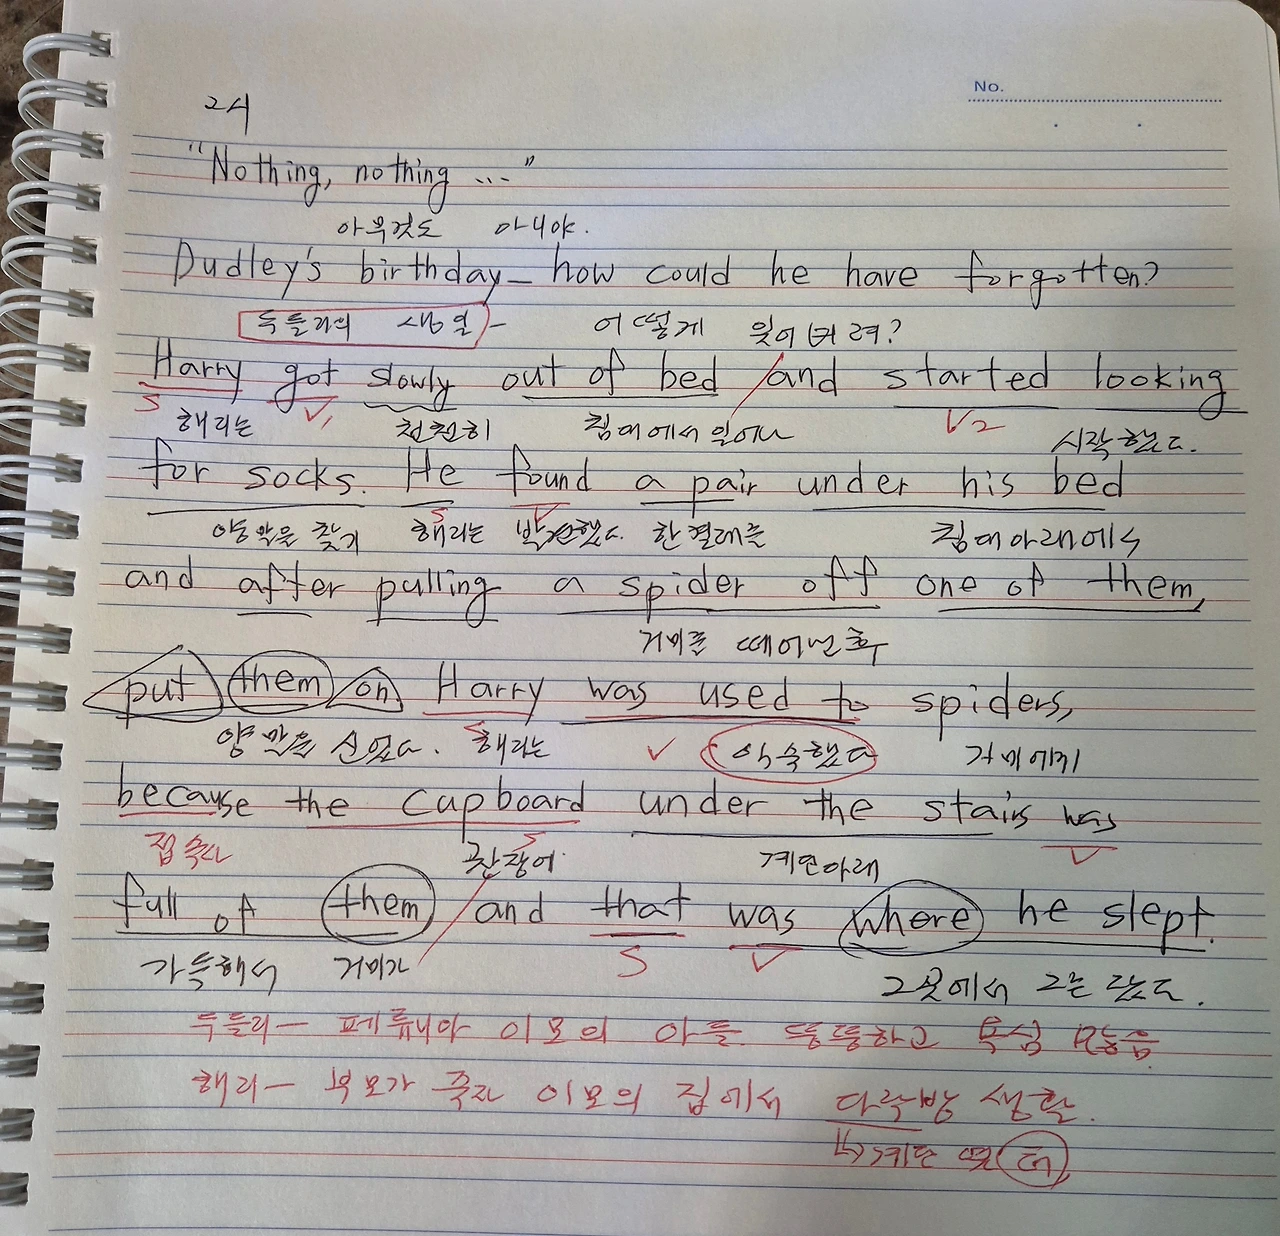 No.
24
"Nothing, nothing ..."
아무것도 아니야.
Dudley's birthday — how could he have forgotten?
두들리의 생일 — 어떻게 잊어버려?
Harry got slowly out of bed and started looking
S V1 V2
해리는 천천히 침대에서 일어나 시작했다.
for socks. He found a pair under his bed
S V
양말을 찾기 해리는 발견했다. 한켤레를 침대아래에서
and after pulling a spider off one of them,
거미를 떼어낸 후
put them on Harry was used to spiders,
양말을 신었다. S 해리는 V 익숙했다 거미에게
because the cupboard under the stairs was
접속사 S 계단아래 V
full of them and that was where he slept.
가득해서 거미가 S V 그곳에서 그는 잤다.
두들리 — 페튜니아 이모의 아들 뚱뚱하고 욕심 많음
해리 — 부모가 죽자 이모의 집에서 다락방 생활.